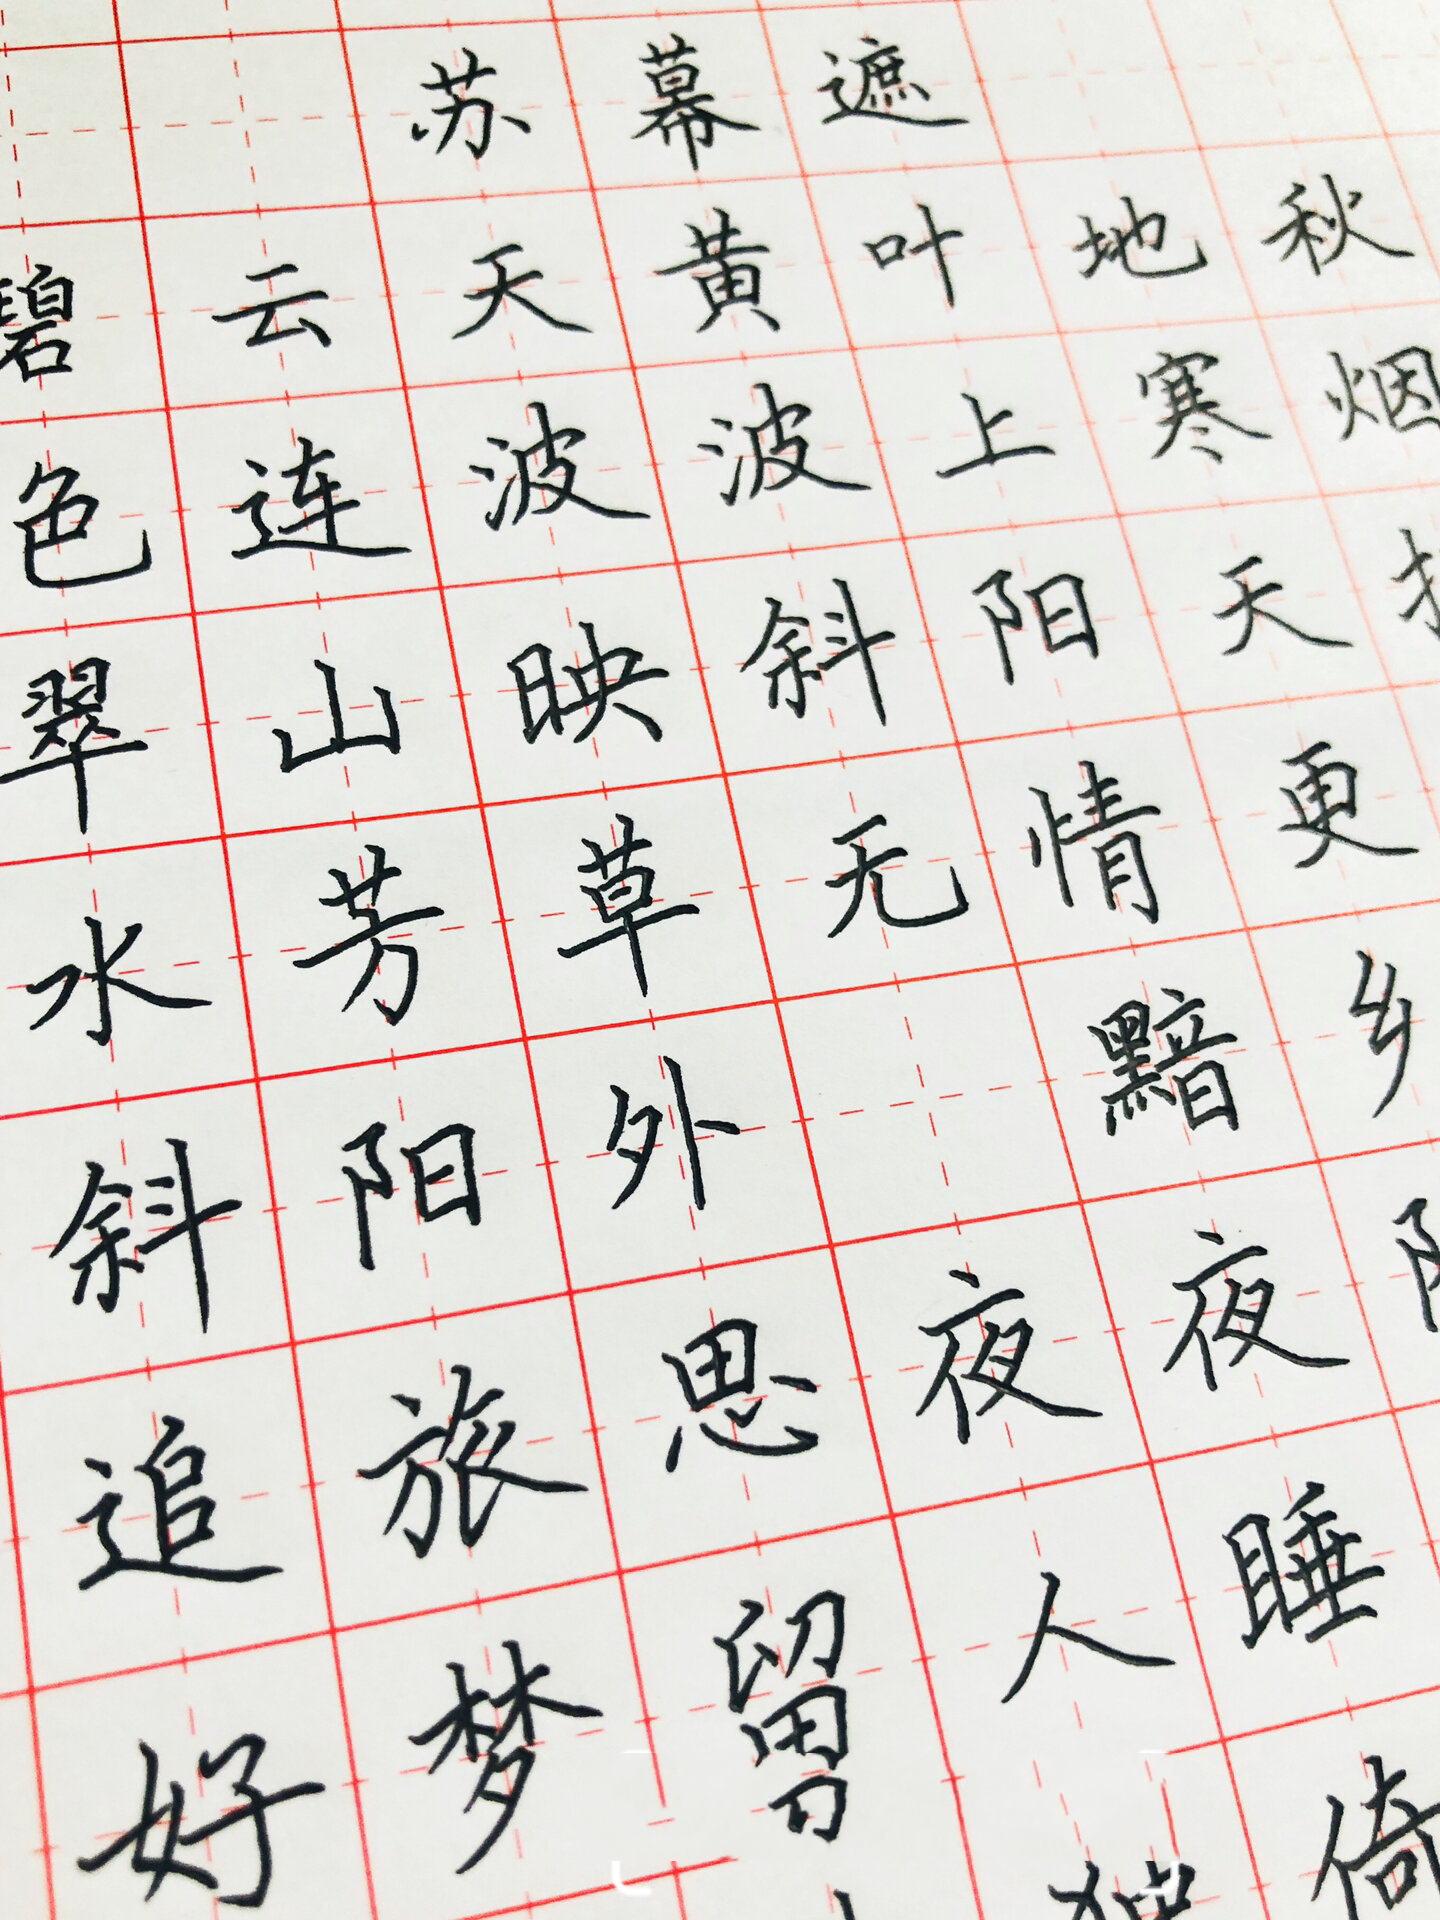 苏幕遮
碧云天黄叶地秋
色连波波上寒烟
翠山映斜阳天
水芳草无情更
斜阳外 黯乡
追旅思夜夜
好梦留人睡
倚